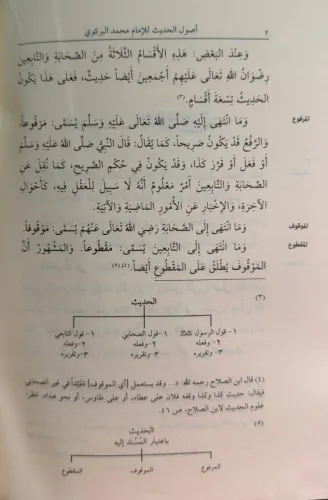 ٢ أصول الحديث للإمام محمد البركوي
وَعِنْدَ البَعْضِ: هَذِهِ الأَقْسَامُ الثَّلَاثَةُ مِنَ الصَّحَابَةِ وَالتَّابِعِينَ
رِضْوَانُ اللهِ تَعَالَى عَلَيْهِمْ أَجْمَعِينَ أَيْضاً حَدِيثٌ، فَعَلَى هَذَا يَكُونُ
الحَدِيثُ تِسْعَةَ أَقْسَامٍ.(٣)
المرفوع وَمَا انْتَهَى إِلَيْهِ صَلَّى اللهُ تَعَالَى عَلَيْهِ وَسَلَّمَ يُسَمَّى: مَرْفُوعاً.
وَالرَّفْعُ قَدْ يَكُونُ صَرِيحاً، كَمَا يُقَالُ: قَالَ النَّبِيُّ صَلَّى اللهُ عَلَيْهِ وَسَلَّمَ
أَوْ فَعَلَ أَوْ قَرَّرَ كَذَا، وَقَدْ يَكُونُ فِي حُكْمِ الصَّرِيحِ، كَمَا نُقِلَ عَنِ
الصَّحَابَةِ وَالتَّابِعِينَ أَمْرٌ مَعْلُومٌ أَنَّهُ لَا سَبِيلَ لِلْعَقْلِ فِيهِ، كَأَحْوَالِ
الآخِرَةِ، وَالإِخْبَارِ عَنِ الأُمُورِ المَاضِيَةِ وَالآتِيَةِ.
الموقوف وَمَا انْتَهَى إِلَى الصَّحَابَةِ رَضِيَ اللهُ تَعَالَى عَنْهُمْ يُسَمَّى: مَوْقُوفاً.
المقطوع وَمَا انْتَهَى إِلَى التَّابِعِينَ يُسَمَّى: مَقْطُوعاً. وَالمَشْهُورُ أَنَّ
المَوْقُوفَ يُطْلَقُ عَلَى المَقْطُوعِ أَيْضاً.(٤)(٥)
(٣) الحديث
١- قول الرسول ﷺ ١- قول الصحابي ١- قول التابعي
٢- وفعله ٢- وفعله ٢- وفعله
٣- وتقريره ٣- وتقريره ٣- وتقريره
(٤) قال ابن الصلاح رحمه الله: «... وقد يستعمل [أي الموقوف] مُقَيَّداً في غير الصحابي
فيقال: حديث كذا وكذا وقفه فلان على عطاء، أو على طاوس، أو نحو هذا». انظر:
علوم الحديث لابن الصلاح، ص ٤٦.
(٥) الحديث
باعتبار المُسْنَد إليه
المرفوع الموقوف المقطوع